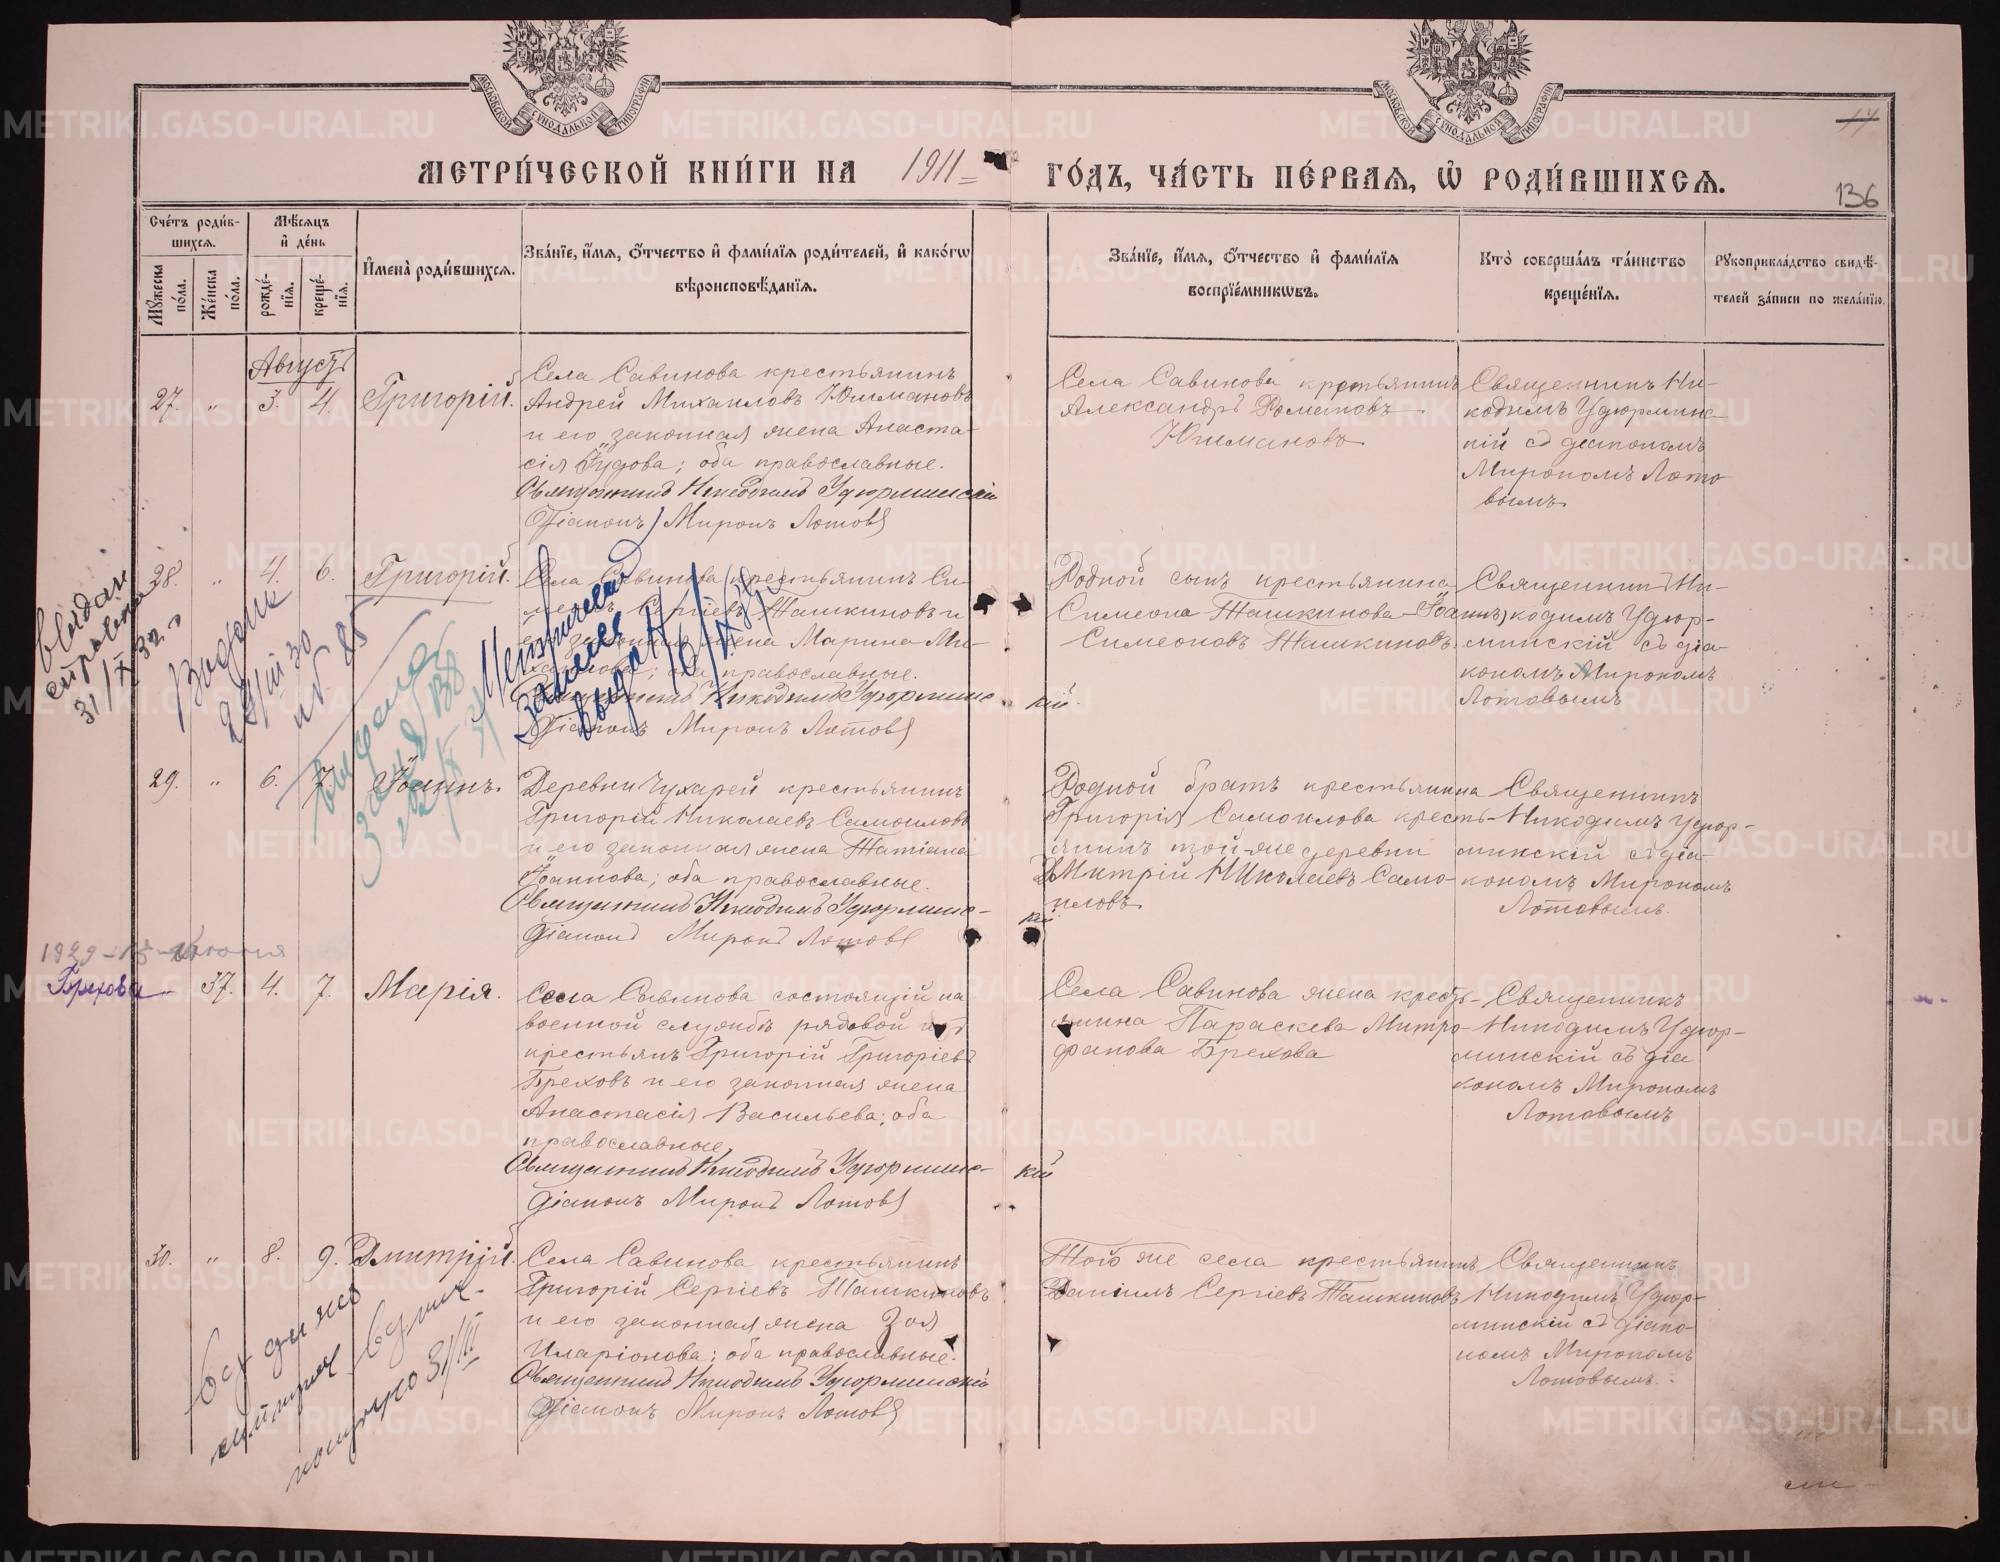 МОСКОВСКОЙ СѴНОДАЛЬНОЙ ТИПОГРАФІИ
МОСКОВСКОЙ СѴНОДАЛЬНОЙ ТИПОГРАФІИ
17
МЕТРИ́ЧЕСКОЙ КНИ́ГИ НА 1911 ГО́ДЪ, ЧА́СТЬ ПЕ́РВАЯ, Ѡ҆ РОДИ́ВШИХСЯ.
136
Сче́тъ роди́в-
шихся.
Мѣ́сяцъ
и҆ де́нь
Мꙋ́жеска
по́ла.
Же́нска
по́ла.
рожде́-
нїя.
креще́-
нїя.
И҆мена̀ роди́вшихся.
Зва́нїе, и҆́мя, ѻ҆́тчество и҆ фами́лїя роди́телей, и҆ како́гѡ
вѣроисповѣ́данїя.
Зва́нїе, и҆́мя, ѻ҆́тчество и҆ фами́лїя
воспрїе́мникѡвъ.
Кто̀ соверша́лъ та́инство
креще́нїя.
Рꙋкоприкла́дство свидѣ́-
телей за́писи по жела́нїю.
Августъ
27. " 3. 4. Григорій.
Села Савинова крестьянинъ
Андрей Михаиловъ Юшмановъ
и его законная жена Анаста-
сія Іудова; оба православные.
Священникъ Никодимъ Удюрминскій
Діаконъ Миронъ Лотовъ
Села Савинова крестьянинъ
Александръ Романовъ
Юшмановъ
Священникъ Ни-
кодимъ Удюрминс-
кій съ діакономъ
Мирономъ Лото
вымъ
28. " 4. 6. Григорій.
Села Савинова крестьянинъ Си-
меонъ Сергіевъ Ташкиновъ и
его законная жена Марина Ми-
хаилова; оба православные.
Священникъ Никодимъ Удюрминс
кій
Діаконъ Миронъ Лотовъ
Родной сынъ крестьянина
Симеона Ташкинова Іоаннъ
Симеоновъ Ташкиновъ
Священникъ Ни-
кодимъ Удюр-
минскій съ діа-
кономъ Мирономъ
Лотовымъ
31/X 32
Выдан
29/III 30
№ 85
Метрическая
выдан
29. " 6. 7. Іоаннъ.
Деревни Чухарей крестьянинъ
Григорій Николаевъ Самоиловъ
и его законная жена Татіана
Іоаннова; оба православные.
Священникъ Никодимъ Удюрминс-
кій
Діаконъ Миронъ Лотовъ
Родной братъ крестьянина
Григорія Самоилова кресть-
янинъ той-же деревни
Дмитрій Николаевъ Само-
иловъ
Священникъ
Никодимъ Удюр-
минскій съ діа-
кономъ Мирономъ
Лотовымъ.
1929-15-Июня
Брехова
37. 4. 7. Марія.
Села Савинова состоящій на
военной службѣ рядовой изъ
крестьянъ Григорій Григоріевъ
Бреховъ и его законная жена
Анастасія Васильева; оба
православные
Священникъ Никодимъ Удюрминс-
кій
Діаконъ Миронъ Лотовъ
Села Савинова жена кресть-
янина Параскева Митро-
фанова Брехова
Священникъ
Никодимъ Удюр-
минскій съ діа
кономъ Мирономъ
Лотовымъ
30. " 8. 9. Дмитрій.
Села Савинова крестьянинъ
Григорій Сергіевъ Ташкиновъ
и его законная жена Зоя
Иларіонова; оба православные.
Священникъ Никодимъ Удюрминскій
Діаконъ Миронъ Лотовъ
Того же села крестьянинъ
Даніилъ Сергіевъ Ташкиновъ
Священникъ
Никодимъ Удюр-
минскій съ діако-
номъ Мирономъ
Лотовымъ.
31/III
METRIKI.GASO-URAL.RU